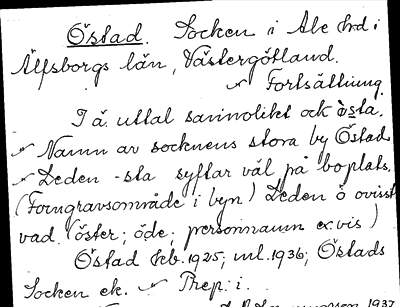 Östad. Socken i Ale hrd i
Älfsborgs län, Västergötland.
Fortsättning.
I ä. uttal sannolikt ock òsta.
Namn av socknens stora by Östad
Leden -sta syftar väl på boplats.
(Forngravsområde i byn) Leden ö ovisst
vad (öster; öde; personnamn ex.vis)
Östad hb. 1925; ml. 1936; Östads
Socken ek. Thep. i.
1937